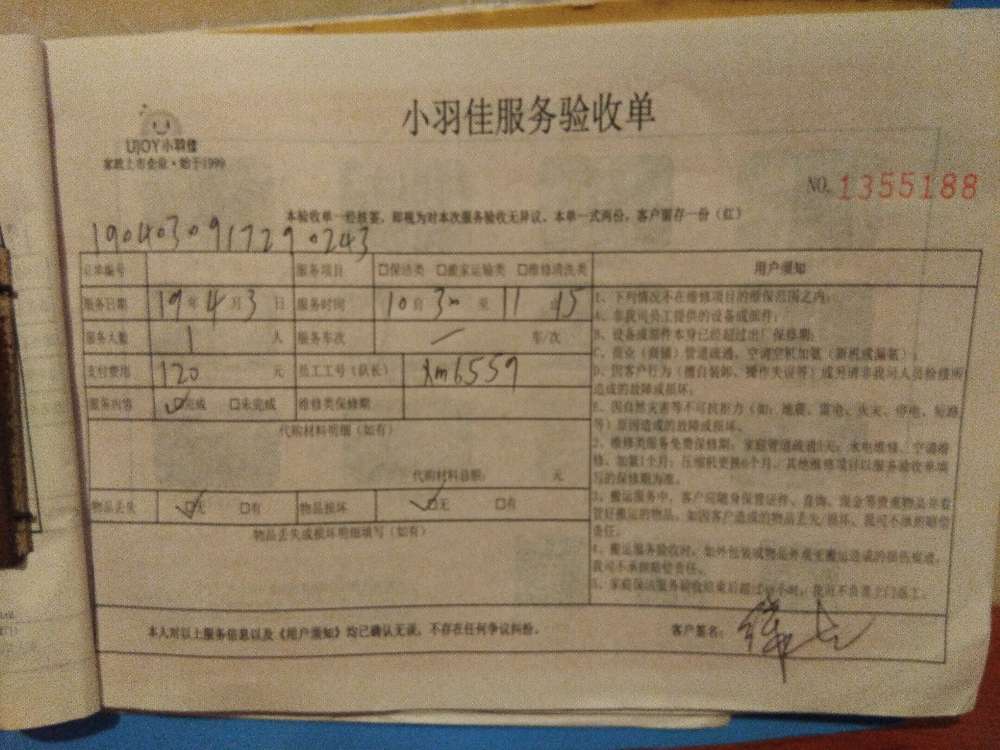 小羽佳服务验收单
UJOY小羽佳
家政上市企业·始于1999
NO. 1355188
本验收单一经接签，即视为对本次服务验收无异议。本单一式两份，客户留存一份（红）
190403091729 0243
订单编号 服务项目 □保洁类 □搬家运输类 □维修清洗类
服务日期 19年4月3日 服务时间 10时30至11时45
服务人数 1 人 服务车次 / 车/次
支付费用 120 元 员工工号（队长） xm6559
服务内容 ☑完成 □未完成 维修类保修期
代购材料明细（如有）
代购材料总额： 元
物品丢失 ☑无 □有 物品损坏 ☑无 □有
物品丢失或损坏明细填写（如有）
用户须知
1、下列情况不在维修项目的维保范围之内：
A、非我司员工提供的设备或部件；
B、设备或部件本身已经超过出厂保修期；
C、商业（商铺）管道疏通、空调空机加氨（新机或漏氨）；
D、因客户行为（擅自装卸、操作失误等）或另请非我司人员检修所
造成的故障或损坏。
E、因自然灾害等不可抗拒力（如：地震、雷电、火灾、停电、短路
等）原因造成的故障或损坏。
2、维修类服务免费保修期：家庭管道疏通1天；水电维修、空调维
修、加氨1个月；压缩机更换6个月。其他维修项目以服务验收单填
写的保修期为准。
3、搬运服务中，客户应随身保管证件、首饰、现金等贵重物品并看
管好搬运的物品，如因客户造成的物品丢失/损坏，我司不承担赔偿
责任。
4、搬运服务验收时，如外包装或物品外观无搬运造成的损伤痕迹，
我司不承担赔偿责任。
5、家庭保洁服务验收结束后超过 小时，我司不负责上门返工。
本人对以上服务信息以及《用户须知》均已确认无误，不存在任何争议纠纷。
客户签名：